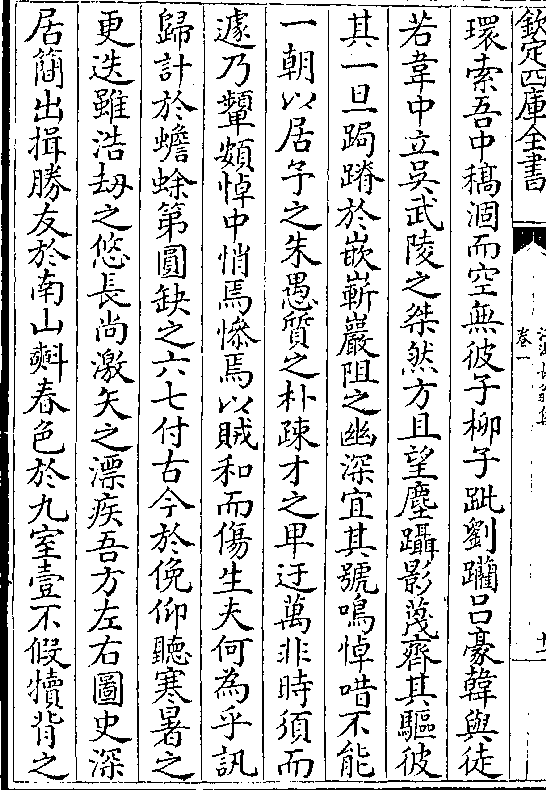 欽定四庫全書
卷一
十一
環索吾中稿涸而空無彼子柳子跐劉躪呂豪韓與徒
若韋中立吳武陵之桀然方且望塵躡影蔑齊其驅彼
其一旦跼蹐於嵌嶄巖阻之幽深宜其號鳴悼唶不能
一朝以居予之朱愚質之朴疎才之卑迂萬非時須而
遽乃顰頞悼中悄焉慘焉以賊和而傷生夫何為乎訊
歸計於蟾蜍第圓缺之六七付古今於俛仰聽寒暑之
更迭雖浩劫之悠長尚激矢之漂疾吾方左右圖史深
居簡出揖勝友於南山㪺春色於九室壹不假犢背之